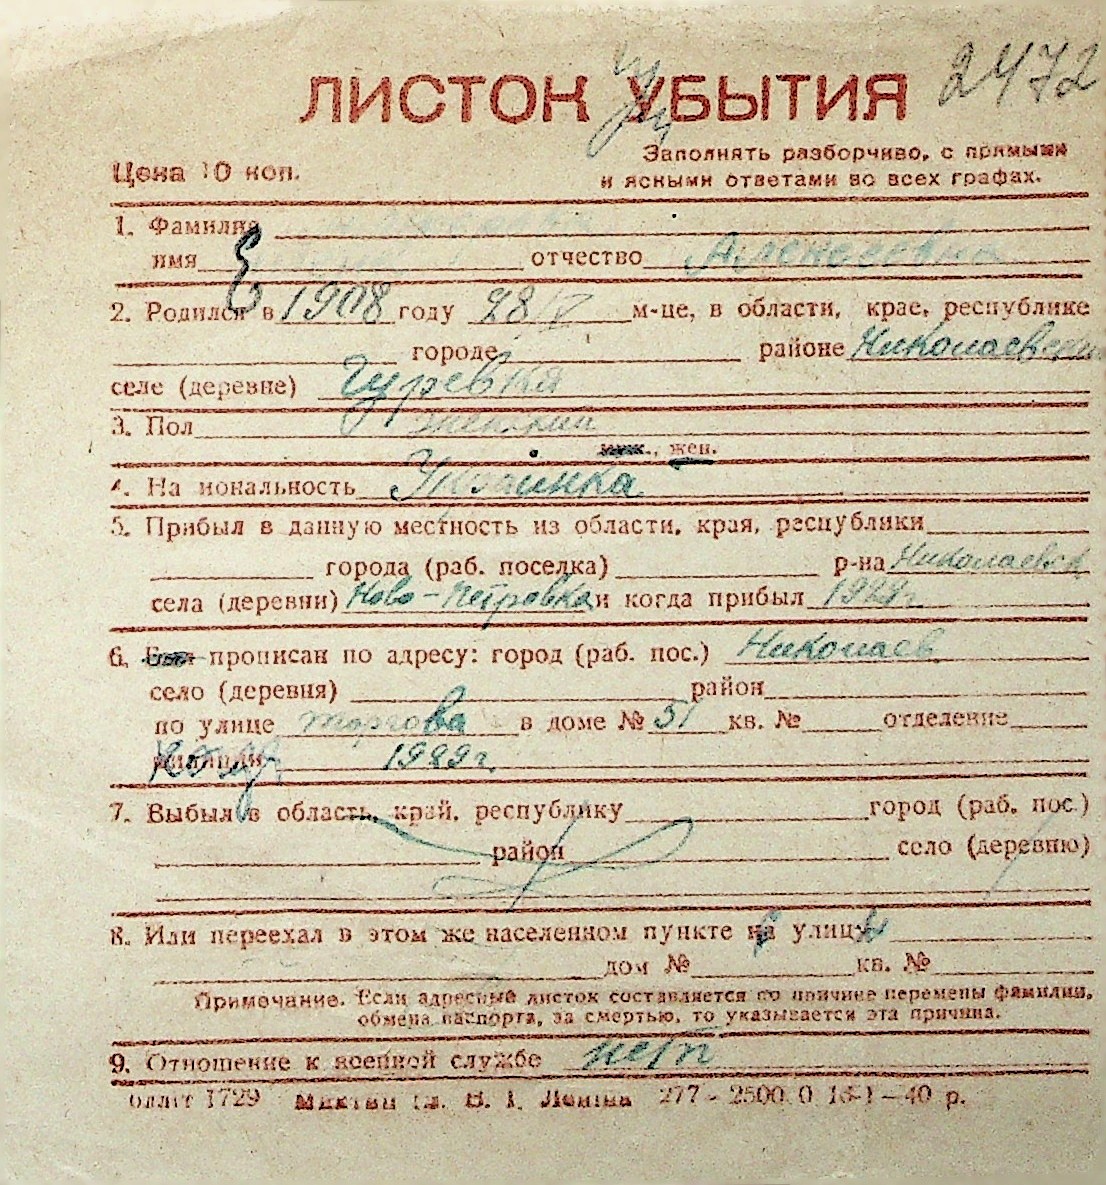 2472
ЛИСТОК УБЫТИЯ
Заполнять разборчиво, с прямыми
Цена 10 коп. и ясными ответами во всех графах.
1. Фамилия
имя отчество Алексеевна
2. Родился в 1908 году 28/V м-це, в области, крае, республике
городе районе Николаевский
селе (деревне) Гуревка
3. Пол женский
муж., жен.
4. Национальность Украинка
5. Прибыл в данную местность из области, края, республики
города (раб. поселка) р-на Николаевск
села (деревни) Ново-Петровка и когда прибыл 1929г.
6. Был прописан по адресу: город (раб. пос.) Николаев
село (деревня) район
по улице торгова в доме № 51 кв. № отделение
милиции 1929г.
7. Выбыл в область, край, республику город (раб. пос.)
район село (деревню)
8. Или переехал в этом же населенном пункте на улицу
дом № кв. №
Примечание. Если адресный листок составляется по причине перемены фамилии,
обмена паспорта, за смертью, то указывается эта причина.
9. Отношение к военной службе нет
1729 В. І. Леніна 277 - 2500.0 - 40 р.